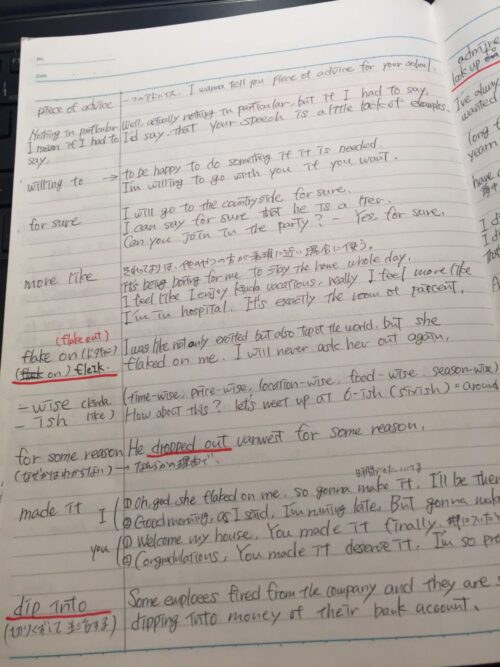 No.
Date
piece of advice → 1つのアドバイス. I wanna tell you piece of advice for your school.
Nothing in particular Well, actually nothing in particular, but if I had to say,
I mean if I had to say. I'd say that your speech is a little lack of examples.
willing to → to be happy to do something if it is needed.
I'm willing to go with you if you want.
for sure I will go to the countryside for sure.
I can say for sure that he is a liar.
Can you join in the party? - Yes for sure.
more like それよりは、他の
It's being boring for me to stay the home whole day.
I feel like I enjoy kinda vacations, really I feel more like
I'm in hospital. It's exactly the room of
(flake out)
flake on I was like not only excited but also top of the world, but she
(flake on) flaked on me. I will never ask her out again.
- wise (kinda (time-wise, price-wise, location-wise, food-wise, season-wise)
- ish like) How about this? let's meet up at 6-ish (sixish) = around
for some reason He dropped out for some reason.
(なぜかはわからない) → なんらかの理由で.
made it I ① Oh, god. she flaked on me. so gonna make it. I'll be there
② Good morning, as I said, I'm running late, But gonna make
you ① Welcome my house, You made it finally.
② Congradulations, You made it deserve it. I'm so pro
dip into Some emploees fired from the company and they are s
dipping into money of their bank account.
admire
look up
I've alway
wanted
long f
yearn
have
I d
I d
that